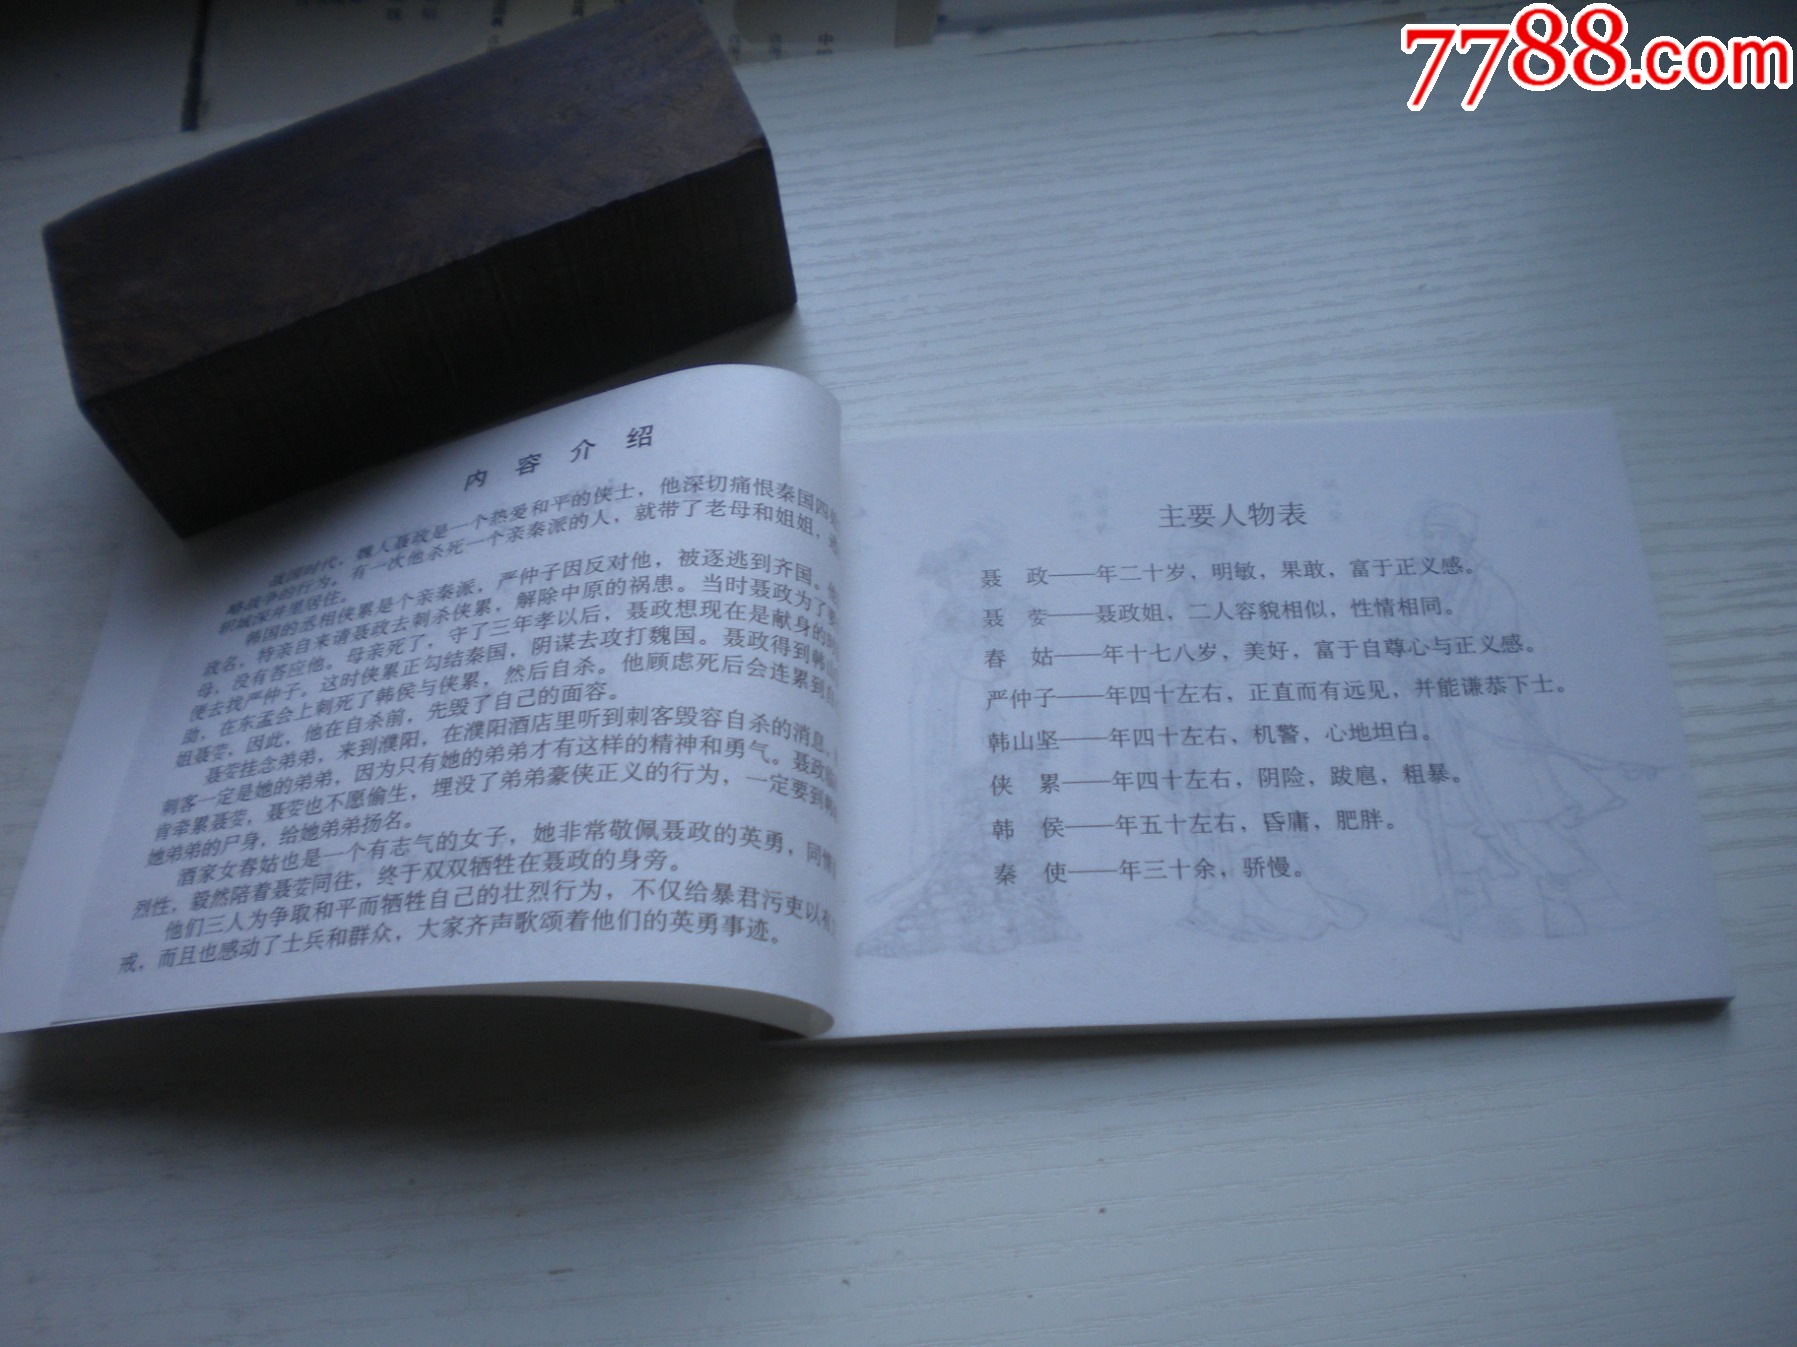 7788.com
内容介绍
战国时代，魏人聂政是一个热爱和平的侠士，他深切痛恨秦国四处
略战争的行为。有一次他杀死一个亲秦派的人，就带了老母和姐姐，
轵城深井里居住。
韩国的丞相侠累是个亲秦派，严仲子因反对他，被逐逃到齐国。他
政名，特亲自来请聂政去刺杀侠累，解除中原的祸患。当时聂政为了要
母，没有答应他。母亲死了，守了三年孝以后，聂政想现在是献身的
便去找严仲子。这时侠累正勾结秦国，阴谋去攻打魏国。聂政得到韩山
助，在东孟会上刺死了韩侯与侠累，然后自杀。他顾虑死后会连累到自
姐聂荌，因此，他在自杀前，先毁了自己的面容。
聂荌挂念弟弟，来到濮阳，在濮阳酒店里听到刺客毁容自杀的消息，
刺客一定是她的弟弟，因为只有她的弟弟才有这样的精神和勇气。聂政
肯牵累聂荌，聂荌也不愿偷生，埋没了弟弟豪侠正义的行为，一定要到
她弟弟的尸身，给她弟弟扬名。
酒家女春姑也是一个有志气的女子，她非常敬佩聂政的英勇，同情
烈性，毅然陪着聂荌同往，终于双双牺牲在聂政的身旁。
他们三人为争取和平而牺牲自己的壮烈行为，不仅给暴君污吏以有
戒，而且也感动了士兵和群众，大家齐声歌颂着他们的英勇事迹。
主要人物表
聂　政——年二十岁，明敏，果敢，富于正义感。
聂　荌——聂政姐，二人容貌相似，性情相同。
春　姑——年十七八岁，美好，富于自尊心与正义感。
严仲子——年四十左右，正直而有远见，并能谦恭下士。
韩山坚——年四十左右，机警，心地坦白。
侠　累——年四十左右，阴险，跋扈，粗暴。
韩　侯——年五十左右，昏庸，肥胖。
秦　使——年三十余，骄慢。